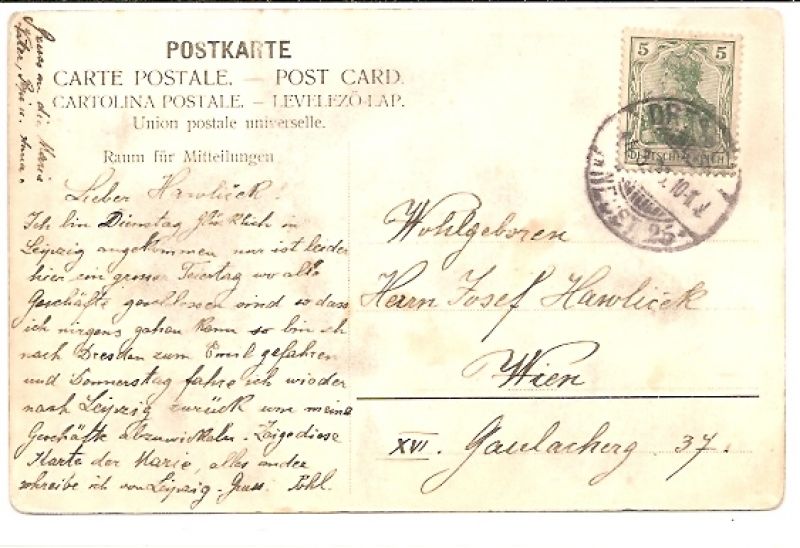 Gruss an die Marie
Vater, Resi u. Anna.
POSTKARTE
CARTE POSTALE. — POST CARD.
CARTOLINA POSTALE. – LEVELEZŐ-LAP.
Union postale universelle.
Raum für Mitteilungen
Lieber Hawlicek!
Ich bin Dienstag Glücklich in
Leipzig angekommen nur ist leider
hier ein grosser Feiertag wo alle
Geschäfte geschlossen sind so dass
ich nirgens gehen kann so bin ich
nach Dresden zum Emil gefahren
und Donnerstag fahre ich wieder
nach Leipzig zurück um meine
Geschäfte abzuwickeln. Zeige diese
Karte der Marie, alles andre
schreibe ich von Leipzig. Gruss. Pohl.
5 5
DEUTSCHES REICH
DRES
25
Wohlgeboren
Herrn Josef Hawlicek
Wien
XVI. Gaulacherg 37.